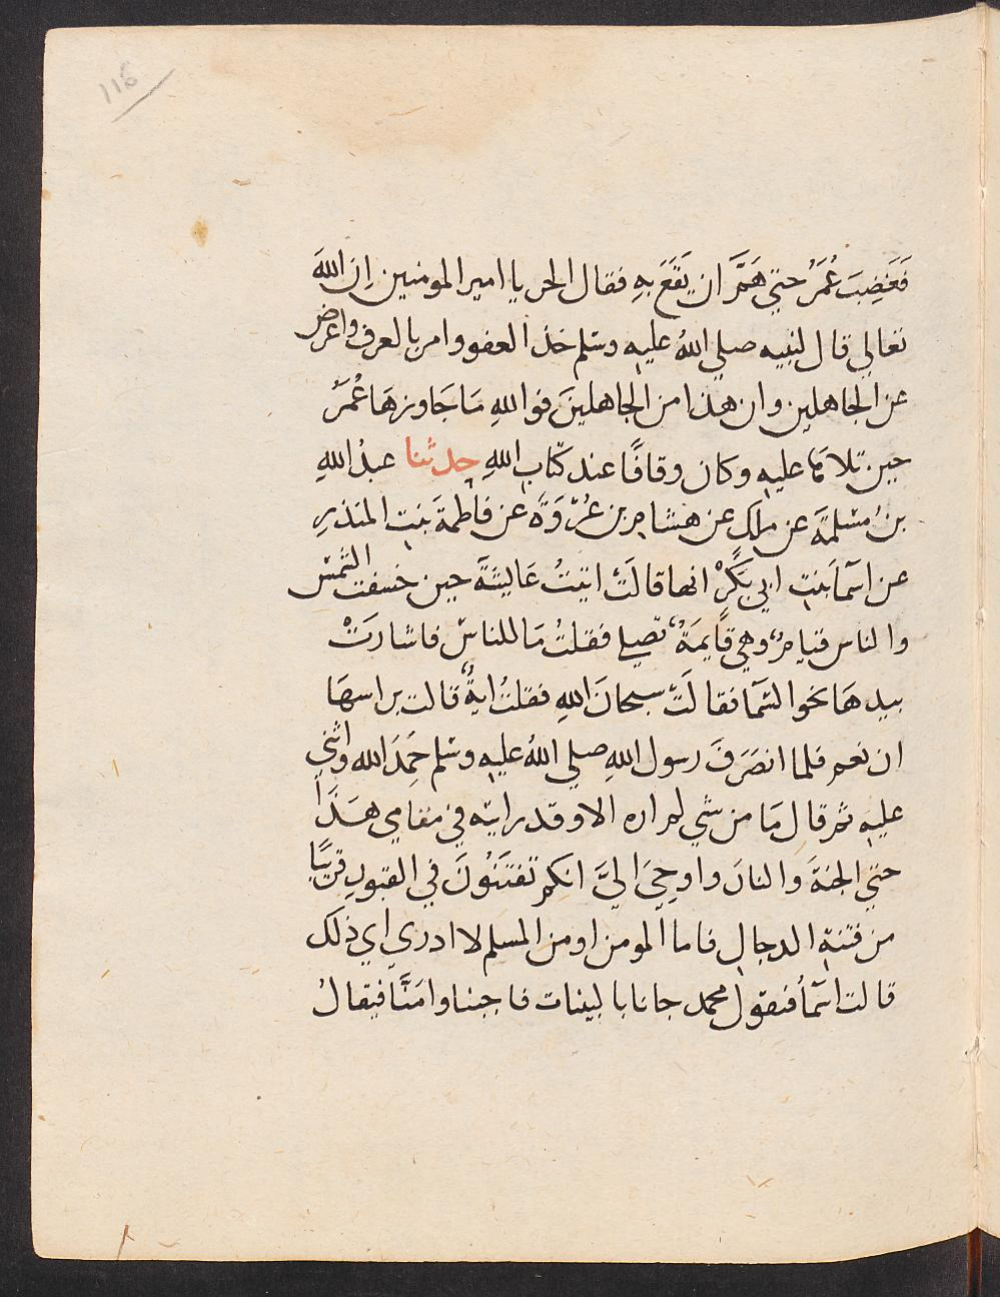 116
فَغَضِبَ عُمَرُ حتي هَمَّ ان يَقَعَ بِهِ فقال الحر يا امير المومنين اِن اللهَ
تعالي قال لنبيه صلي اللهُ عليه وسلم خذ العفو وامر بالعرف واعرض
عن الجاهلين وان هذا من الجاهلينَ فوالله مَا جَاوزهَا عُمَرُ
حين تلاهَا عليه وكان وقافًا عند كتاب اللهِ حدثنا عبدُ اللهِ
بنُ مسْلمَةَ عن ملكٍ عن هشام بن عُرْوَةَ عن فاطمةَ بنت المنذرِ
عن اسمآ بنتِ ابي بَكْرٍ انها قالَتْ اتيتُ عَايشَةَ حين خسفت الشمس
والناس قيامٌ وهي قَايمَةٌ تصلي فقلتُ مَا للناسْ فاشارَتْ
بيدهَا نحو السَمآ فقالَتْ سبحانَ اللهِ فقلتُ ايةٌ قالت براسهَا
ان نعم فلما انصَرَفَ رسول اللهِ صلي اللهُ عليه وسلم حَمِدَ الله واثني
عليه ثم قال مَا من شي لم اره الا وقد رايته في مقامي هَذَا
حتي الجنةَ والنارَ واوحِيَ اليَّ انكم تفتَنُونَ في القبورِ قريبًا
من فتنةِ الدجالِ فاما المومن او من المسلم لا ادري اي ذلك
قالت اسمآُ فيقول محمد جانا بالبينات فاجبنا وامَنَّا فيقالُ